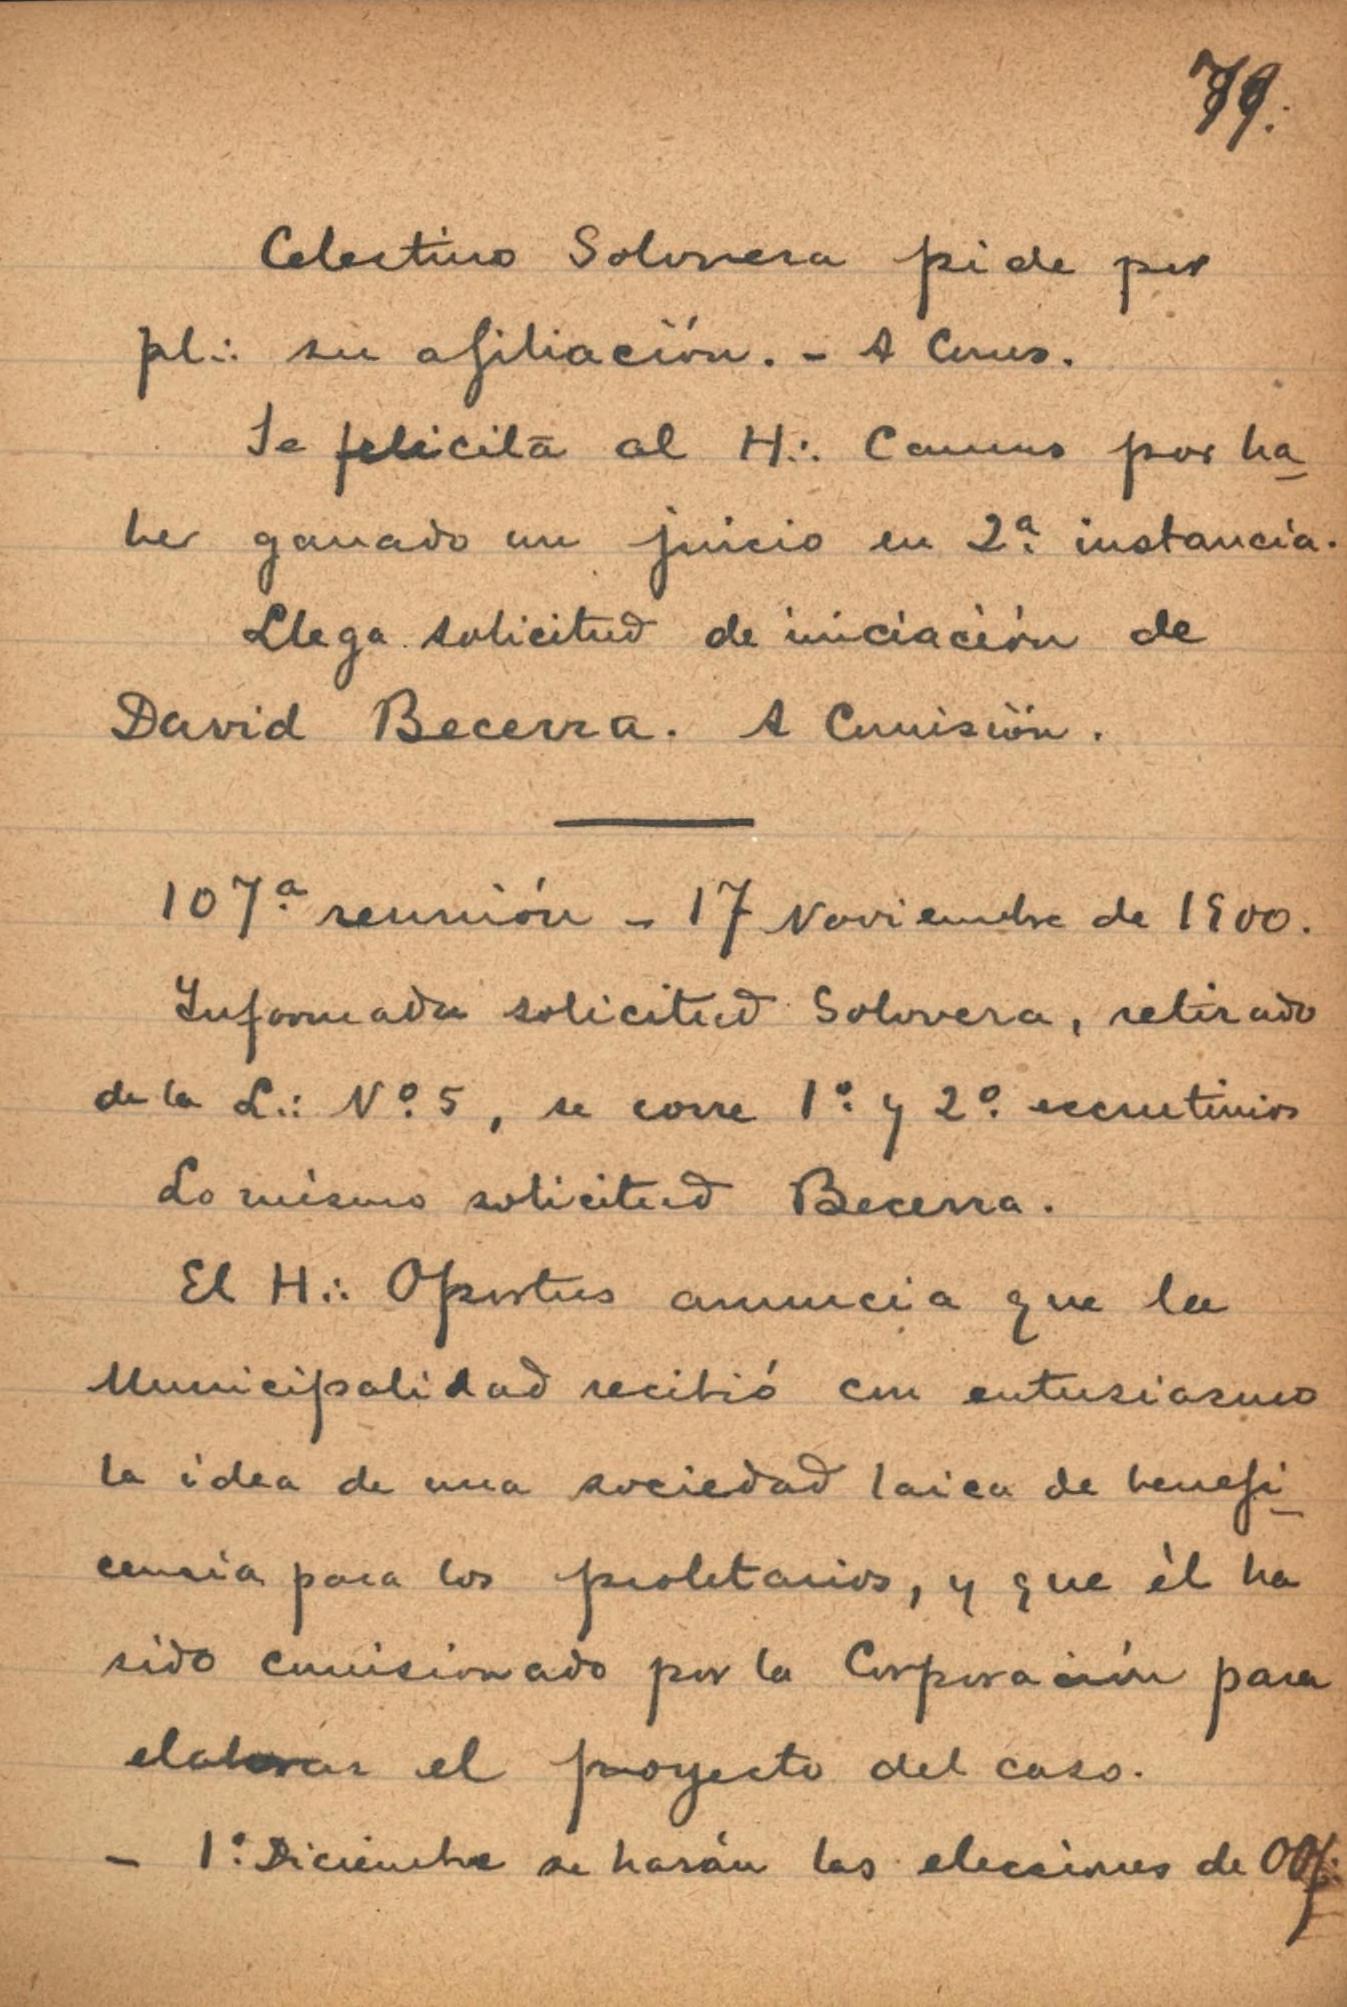 79.
Celestino Solovera pide por
pl∴ su afiliación. - A Comis.
Se felicita al H∴ Camus por ha-
ber ganado un juicio en 2ª instancia.
Llega solicitud de iniciación de
David Becerra. A Comisión.
107ª reunión - 17 Noviembre de 1900.
Informada solicitud Solovera, retirado
de la L∴ Nº 5, se corre 1º y 2º escrutinios
Lo mismo solicitud Becerra.
El H∴ Oportus anuncia que la
Municipalidad recibió con entusiasmo
la idea de una sociedad laica de benefi-
cencia para los proletarios, y que él ha
sido comisionado por la Corporación para
elaborar el proyecto del caso.
- 1º Diciembre se harán las elecciones de OOf∴